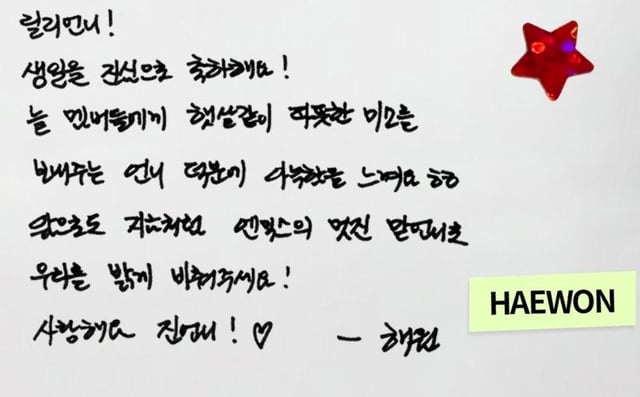 릴리언니!
생일을 진심으로 축하해요!
늘 멤버들에게 햇살같이 따뜻한 미소를
보내주는 언니 덕분에 아늑함을 느껴요 ㅎㅎ
앞으로도 지금처럼 엔믹스의 멋진 맏언니로
우리를 밝게 비춰주세요!
HAEWON
사랑해요 진언니! ♡ — 해원